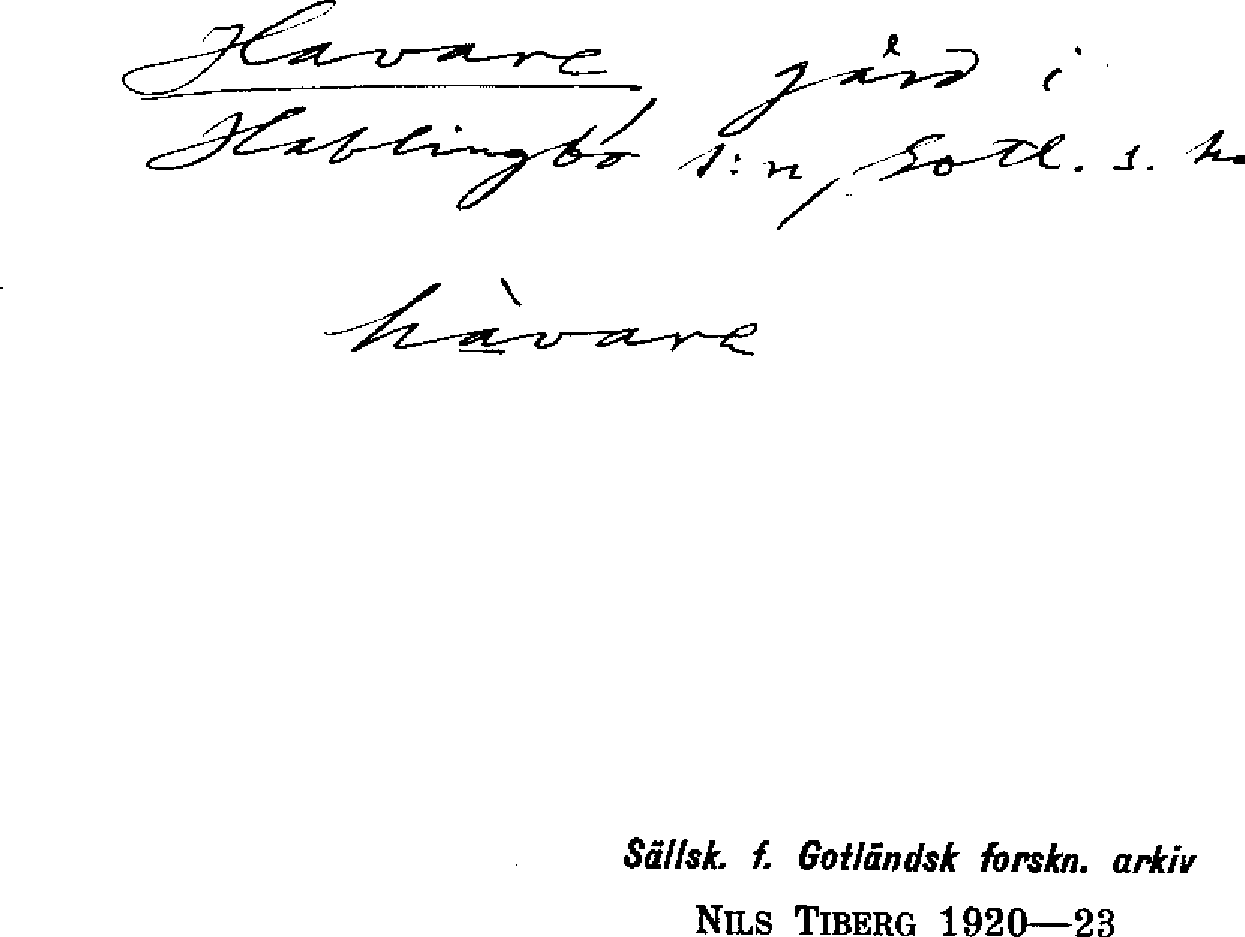 Havare, gård i
Hablingbo s:n, Gotl. s. h
hàvare
Sällsk. f. Gotländsk forskn. arkiv
NILS TIBERG 1920—23